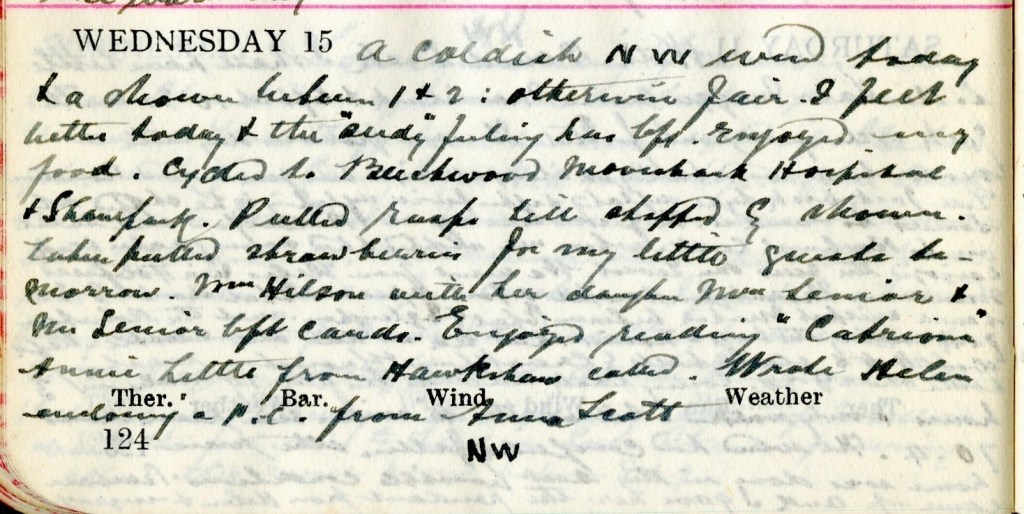 WEDNESDAY 15 A coldish NW wind today
& a shower between 1 & 2 : otherwise fair. I feel
better today & the "seedy" feeling has left. Enjoyed my
food. Cycled to Beechwood Hospital
& Shawpark. Pulled rasps till stopped by shower.
Later pulled strawberries for my little guests to-
morrow. Mrs Hilson with her daughter Mrs Senior &
Mr Senior left cards. Enjoyed reading "Catriona"
Annie Little from Hawkshaw called. Wrote Helen
Ther. Bar. Wind Weather
enclosing a P.C. from Anna Scott
124 NW